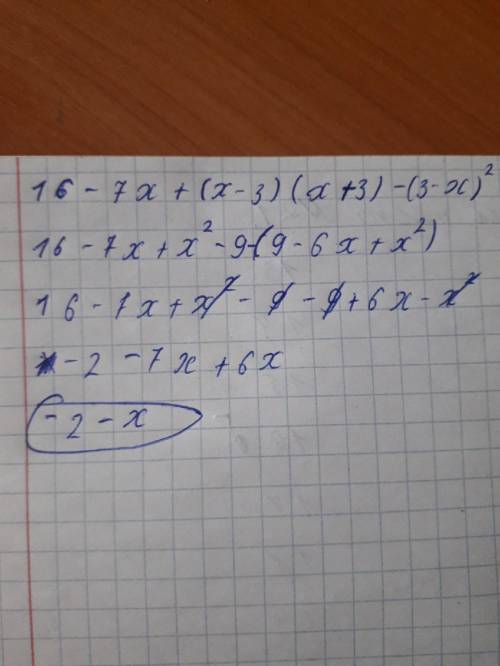 16 - 7x + (x-3)(x+3) - (3-x)²
16 - 7x + x² - 9 - (9 - 6x + x²)
16 - 7x + x² - 9 - 9 + 6x - x²
-2 - 7x + 6x
-2 - x